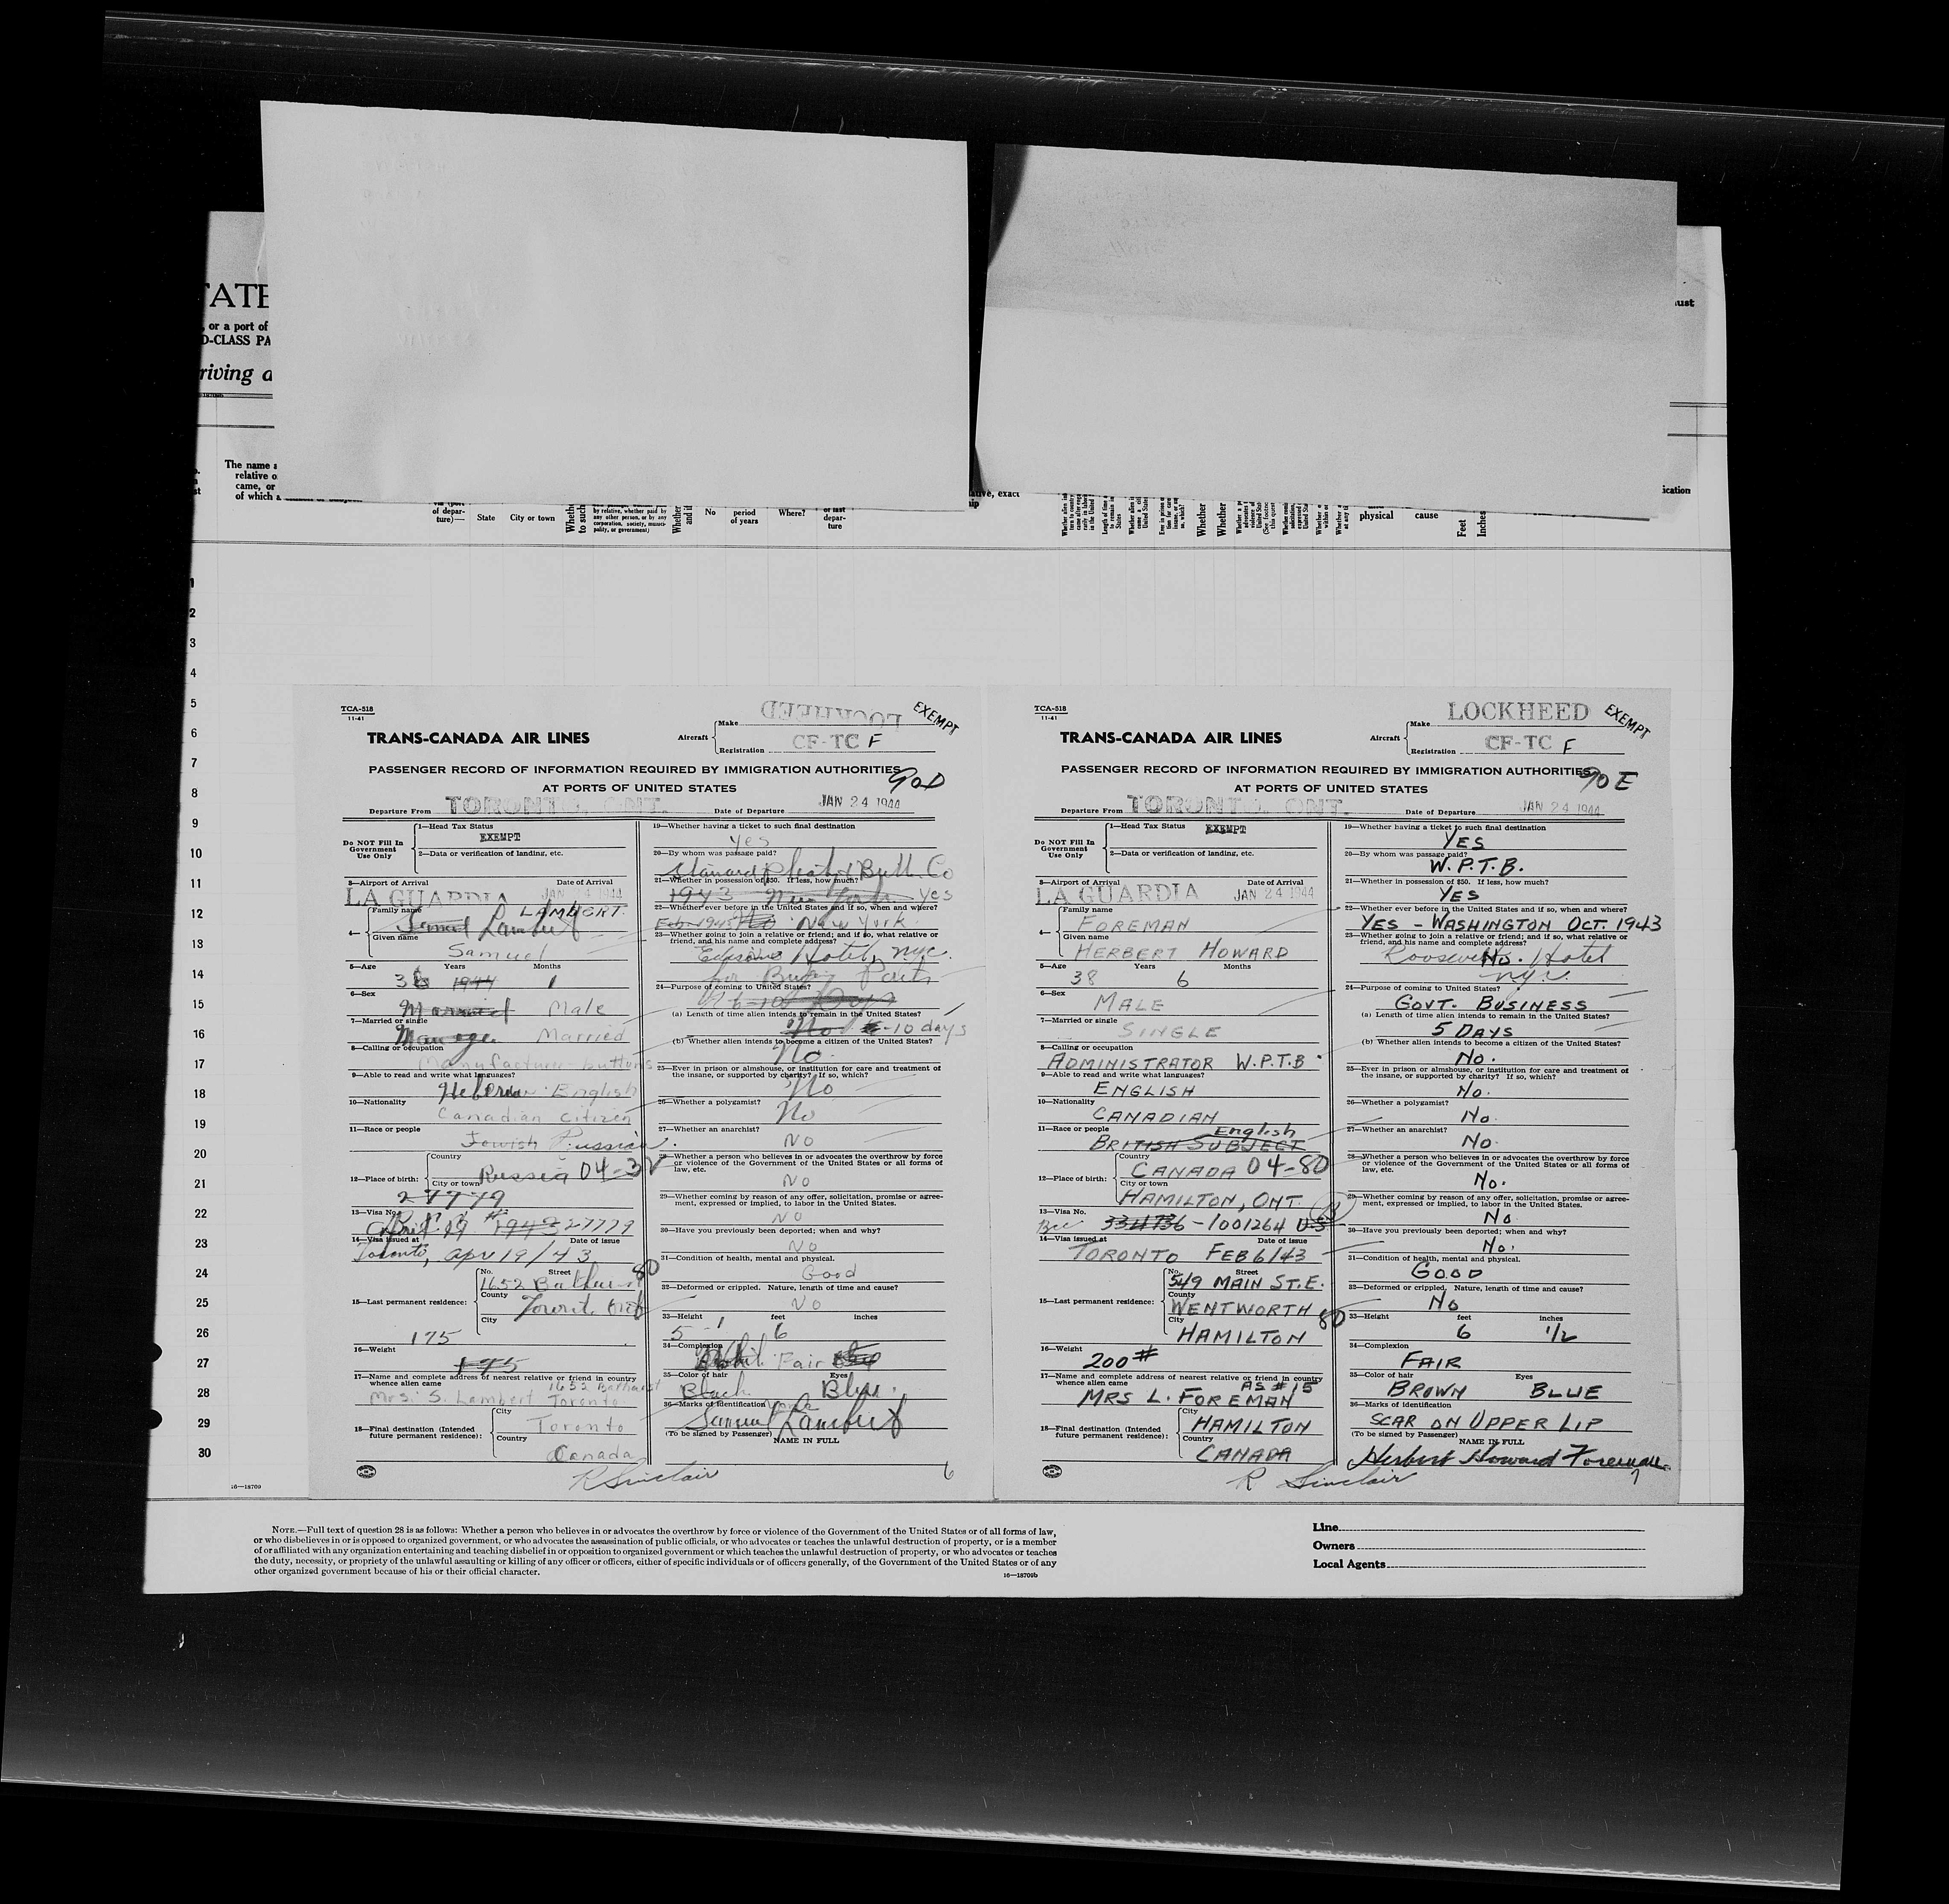 TATE
, or a port of
D-CLASS PA
riving a
The name a
relative o
came, or
of which a
of depar-
ture)—
State
City or town
Whethe
to such
by relative, whether paid by
any other person, or by any
corporation, society, munici-
pality, or government)
Whether
and if
No
period
of years
Where?
or last
depar-
ture
ative, exact
Whether
Whether
physical
cause
Feet
Inches
ust
ication
1
2
3
4
5
6
7
8
9
10
11
12
13
14
15
16
17
18
19
20
21
22
23
24
25
26
27
28
29
30
16—18709
TCA-518
11-41
LOCKHEED
EXEMPT
TRANS-CANADA AIR LINES
Aircraft
Make
Registration CF-TC F
PASSENGER RECORD OF INFORMATION REQUIRED BY IMMIGRATION AUTHORITIES
90D
AT PORTS OF UNITED STATES
Departure From TORONTO, ONT.
Date of Departure JAN 24 1944
Do NOT Fill In
Government
Use Only
1—Head Tax Status
EXEMPT
2—Data or verification of landing, etc.
3—Airport of Arrival
Date of Arrival
LA GUARDIA JAN 24 1944
4—
Family name
LAMBERT
Samuel Lambert
Given name
Samuel
5—Age
Years
Months
36 1944 1
6—Sex
Married Male
7—Married or single
Manager Married
8—Calling or occupation
Manufacturer buttons
9—Able to read and write what languages?
Hebrew English
10—Nationality
Canadian citizen
11—Race or people
Jewish Russian
12—Place of birth:
Country
Russia 04-3V
City or town
27779
13—Visa No.
April 19 1943 27779
14—Visa issued at
Date of issue
Toronto, Apr 19/43
15—Last permanent residence:
No.
Street
1652 Bathurst
80
County
City
175
16—Weight
175
17—Name and complete address of nearest relative or friend in country
whence alien came
1652 Bathurst
Mrs. S. Lambert Toronto
18—Final destination (Intended
future permanent residence):
City
Toronto
Country
Canada
R Sinclair
19—Whether having a ticket to such final destination
Yes
20—By whom was passage paid?
& Butt. Co
21—Whether in possession of $50. If less, how much?
1943 New York Yes
22—Whether ever before in the United States and if so, when and where?
New York
23—Whether going to join a relative or friend; and if so, what relative or
friend, and his name and complete address?
Edison Hotel, NYC.
for Buying Parts
24—Purpose of coming to United States?
(a) Length of time alien intends to remain in the United States?
No -10 days
(b) Whether alien intends to become a citizen of the United States?
No.
25—Ever in prison or almshouse, or institution for care and treatment of
the insane, or supported by charity? If so, which?
No
26—Whether a polygamist?
No
27—Whether an anarchist?
No
28—Whether a person who believes in or advocates the overthrow by force
or violence of the Government of the United States or all forms of
law, etc.
No
29—Whether coming by reason of any offer, solicitation, promise or agree-
ment, expressed or implied, to labor in the United States.
No
30—Have you previously been deported; when and why?
No
31—Condition of health, mental and physical.
Good
32—Deformed or crippled. Nature, length of time and cause?
No
33—Height
feet
inches
5 6
34—Complexion
Fair
35—Color of hair
Eyes
Black Blue.
36—Marks of identification
None
Samuel Lambert
(To be signed by Passenger)
NAME IN FULL
6
TCA-518
11-41
LOCKHEED
EXEMPT
TRANS-CANADA AIR LINES
Aircraft
Make
Registration CF-TC F
PASSENGER RECORD OF INFORMATION REQUIRED BY IMMIGRATION AUTHORITIES
90 E
AT PORTS OF UNITED STATES
Departure From TORONTO, ONT.
Date of Departure JAN 24 1944
Do NOT Fill In
Government
Use Only
1—Head Tax Status
EXEMPT
2—Data or verification of landing, etc.
3—Airport of Arrival
Date of Arrival
LA GUARDIA JAN 24 1944
4—
Family name
FOREMAN
Given name
HERBERT HOWARD
5—Age
Years
Months
38 6
6—Sex
MALE
7—Married or single
SINGLE
8—Calling or occupation
ADMINISTRATOR W.P.T.B.
9—Able to read and write what languages?
ENGLISH
10—Nationality
CANADIAN
11—Race or people
English
BRITISH SUBJECT
12—Place of birth:
Country
CANADA 04-80
City or town
HAMILTON, ONT.
13—Visa No.
BCC 334736 - 1001264 US
14—Visa issued at
Date of issue
TORONTO FEB 6/43
15—Last permanent residence:
No.
Street
549 MAIN ST. E.
County
WENTWORTH 80
City
HAMILTON
16—Weight
200 #
17—Name and complete address of nearest relative or friend in country
whence alien came
AS # 15
MRS L. FOREMAN
18—Final destination (Intended
future permanent residence):
City
HAMILTON
Country
CANADA
R Sinclair
19—Whether having a ticket to such final destination
YES
20—By whom was passage paid?
W.P.T.B.
21—Whether in possession of $50. If less, how much?
YES
22—Whether ever before in the United States and if so, when and where?
YES - WASHINGTON OCT. 1943
23—Whether going to join a relative or friend; and if so, what relative or
friend, and his name and complete address?
Roosevelt No. Hotel
nyc.
24—Purpose of coming to United States?
GOVT. BUSINESS
(a) Length of time alien intends to remain in the United States?
5 DAYS
(b) Whether alien intends to become a citizen of the United States?
No.
25—Ever in prison or almshouse, or institution for care and treatment of
the insane, or supported by charity? If so, which?
No.
26—Whether a polygamist?
No.
27—Whether an anarchist?
No.
28—Whether a person who believes in or advocates the overthrow by force
or violence of the Government of the United States or all forms of
law, etc.
No.
29—Whether coming by reason of any offer, solicitation, promise or agree-
ment, expressed or implied, to labor in the United States.
No
30—Have you previously been deported; when and why?
No.
31—Condition of health, mental and physical.
GOOD
32—Deformed or crippled. Nature, length of time and cause?
No
33—Height
feet
inches
6 1/2
34—Complexion
FAIR
35—Color of hair
Eyes
BROWN BLUE
36—Marks of identification
SCAR ON UPPER LIP
(To be signed by Passenger)
NAME IN FULL
Herbert Howard Foreman
7
NOTE.—Full text of question 28 is as follows: Whether a person who believes in or advocates the overthrow by force or violence of the Government of the United States or of all forms of law,
or who disbelieves in or is opposed to organized government, or who advocates the assassination of public officials, or who advocates or teaches the unlawful destruction of property, or is a member
of or affiliated with any organization entertaining and teaching disbelief in or opposition to organized government or which teaches the unlawful destruction of property, or who advocates or teaches
the duty, necessity, or propriety of the unlawful assaulting or killing of any officer or officers, either of specific individuals or of officers generally, of the Government of the United States or of any
other organized government because of his or their official character.
16—18709b
Line
Owners
Local Agents